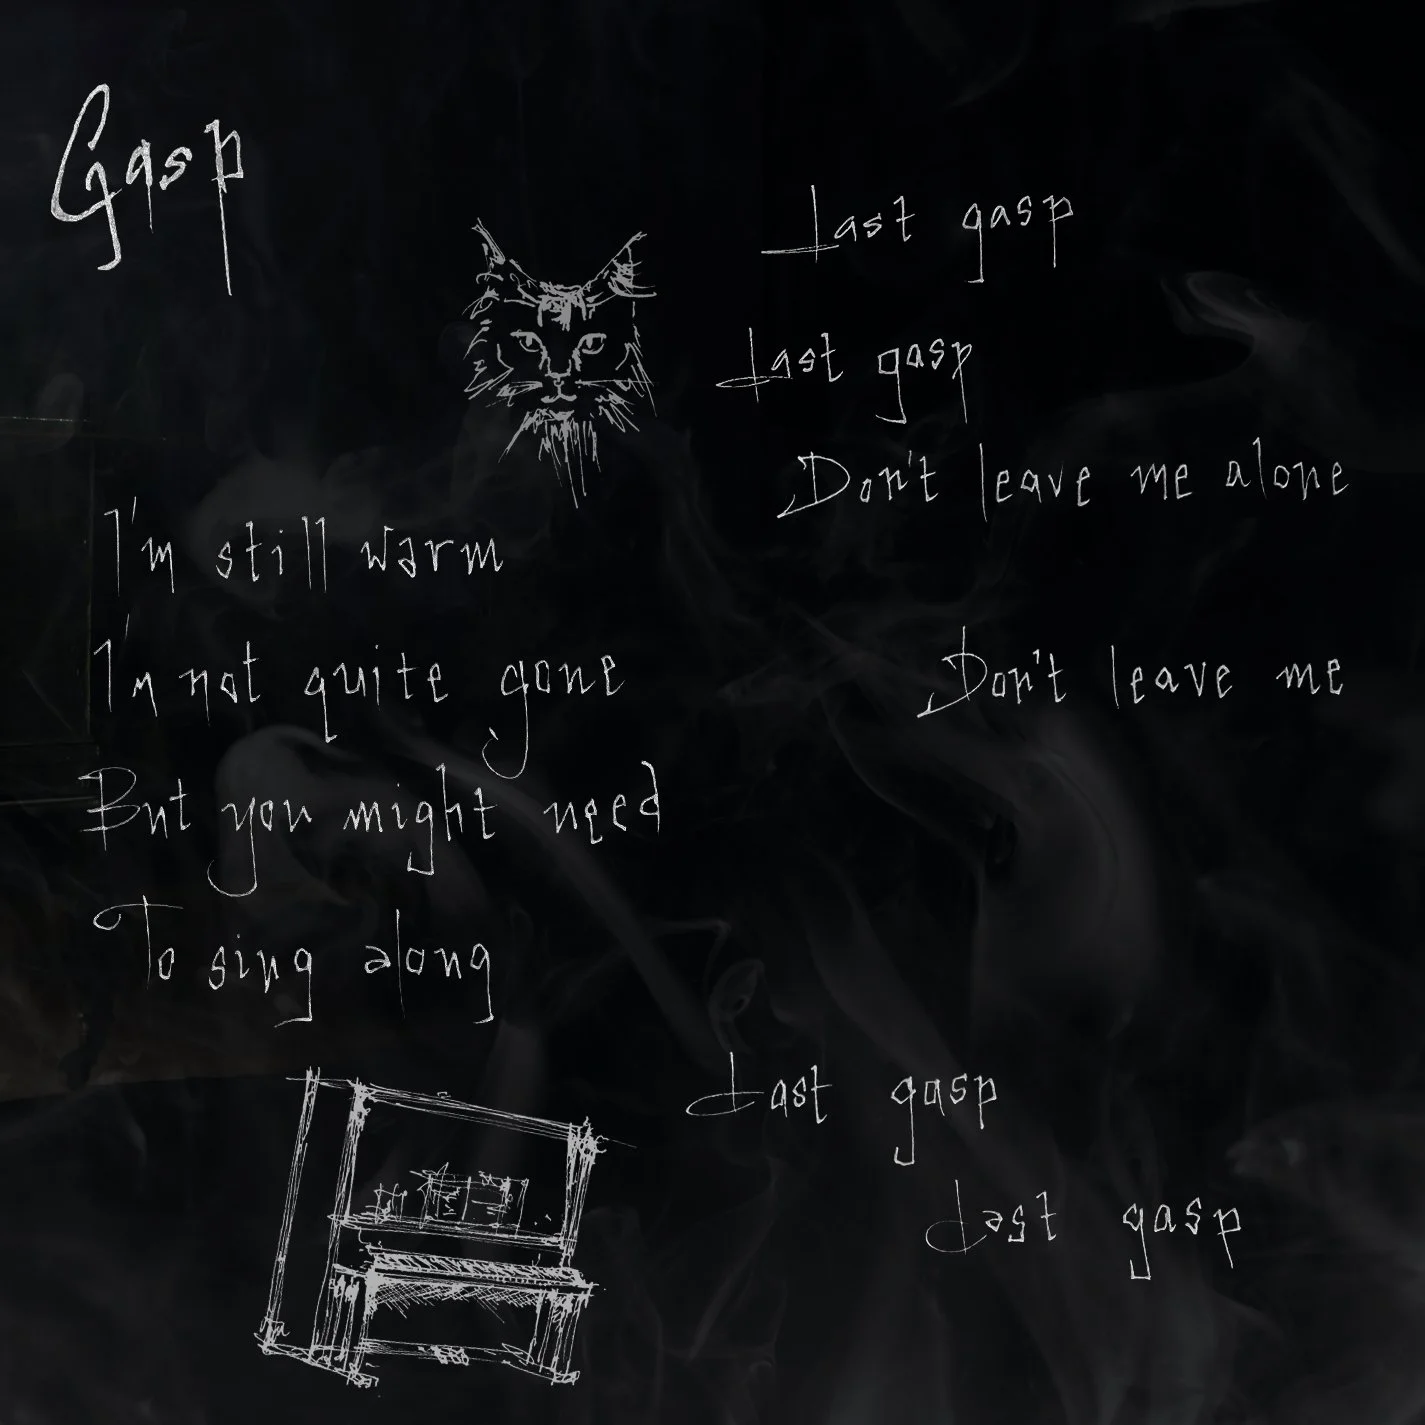 Gasp
I'm still warm
I'm not quite gone
But you might need
To sing along
Last gasp
Last gasp
Don't leave me alone
Don't leave me
Last gasp
Last gasp